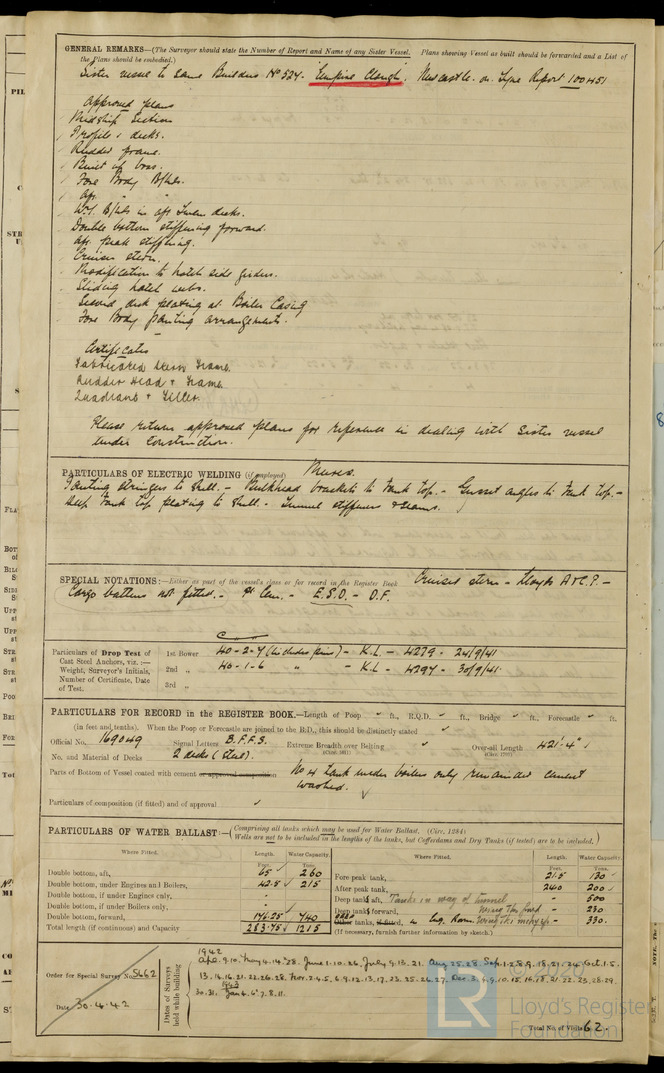 GENERAL REMARKS—(The Surveyor should state the Number of Report and Name of any Sister Vessel. Plans showing Vessel as built should be forwarded and a List of
the Plans should be embodied.)
Sister vessel to same Builders No 524. "Empire Clough". Newcastle-on-Tyne Report 100451
Approved plans
Midship Section
Profile & decks.
Rudder frame.
Built up boss.
Fore Body B/hds.
Aft " "
W.T. B/hds in aft Tween decks.
Double bottom stiffening forward.
Aft peak stiffening.
Cruiser stern.
Modification to hatch side girders.
Sliding hatch webs.
Second deck plating at Boiler Casing
Fore Body panting arrangements.
Certificates
Fabricated Stern Frame.
Rudder Head & Frame
Quadrant & Tiller.
Please return approved plans for reference in dealing with Sister vessel
under construction.
PARTICULARS OF ELECTRIC WELDING (if employed)
Panting stringers to shell. – Bulkhead brackets to tank top. – Gusset angles to tank top. –
deep tank top plating to shell. – Tunnel stiffeners & seams.
SPECIAL NOTATIONS:—Either as part of the vessel's class or for record in the Register Book Cruiser stern – Lloyds A & C.P. –
Cargo battens not fitted. – E.S.D. – D.F.
Particulars of Drop Test of
Cast Steel Anchors, viz.:—
Weight, Surveyor's Initials,
Number of Certificate, Date
of Test.
1st Bower 40-2-7 (includes pins) – K.L. – 4279 – 24/9/41
2nd " 40-1-6 " – K.L – 4297 – 30/9/41.
3rd "
PARTICULARS FOR RECORD in the REGISTER BOOK.—Length of Poop " ft., R.Q.D. " ft., Bridge " ft., Forecastle " ft.
(in feet and tenths). When the Poop or Forecastle are joined to the B.D., this should be distinctly stated "
Official No. 169049 Signal Letters B.F.F.S. Extreme Breadth over Belting " Over-all Length 421'-4"
(Circ. 1703)
No. and Material of Decks 2 decks (steel).
Parts of Bottom of Vessel coated with cement or approved composition No 4 tank under boilers only remainder cement
washed.
Particulars of composition (if fitted) and of approval
PARTICULARS OF WATER BALLAST:—(Comprising all tanks which may be used for Water Ballast. (Circ. 1284)
Wells are not to be included in the lengths of the tanks, but Cofferdams and Dry Tanks (if tested) are to be included.)
Where Fitted. Length. Water Capacity.
Feet. Tons.
Double bottom, aft, 65 260
Double bottom, under Engines and Boilers, 42.5 215
Double bottom, if under Engines only, -
Double bottom, if under Boilers only, -
Double bottom, forward, 176.25 740
Total length (if continuous) and Capacity 283.75 1215
Where Fitted. Length. Water Capacity.
Feet. Tons.
Fore peak tank, 21.5 130
After peak tank, 24.0 200
Deep tanks aft, Tanks in way of Tunnel - 500
Deep tanks forward, - 230
Other tanks, Eng. Room - 330.
(If necessary, furnish further information by sketch.)
Order for Special Survey No. 5662
Date 30.4.42
Dates of Surveys
held while building
1942
Apr. 9.10. May 4.14.28. June 1.10.26. July 9.13.21. Aug 25.28. Sep. 1.2.8.9.18.21.24. Oct 1.5.
13.14.16.21.22.26.28. Nov. 2.4.5.6.9.12.13.17.23.25.26.27. Dec. 3.4.9.10.15.16.18.21.22.23.28.29.
30.31. 1943 Jan 4.6.7.8.11.
Total No. of Visits 62.
© 2020
LR
Lloyd's Register
Foundation